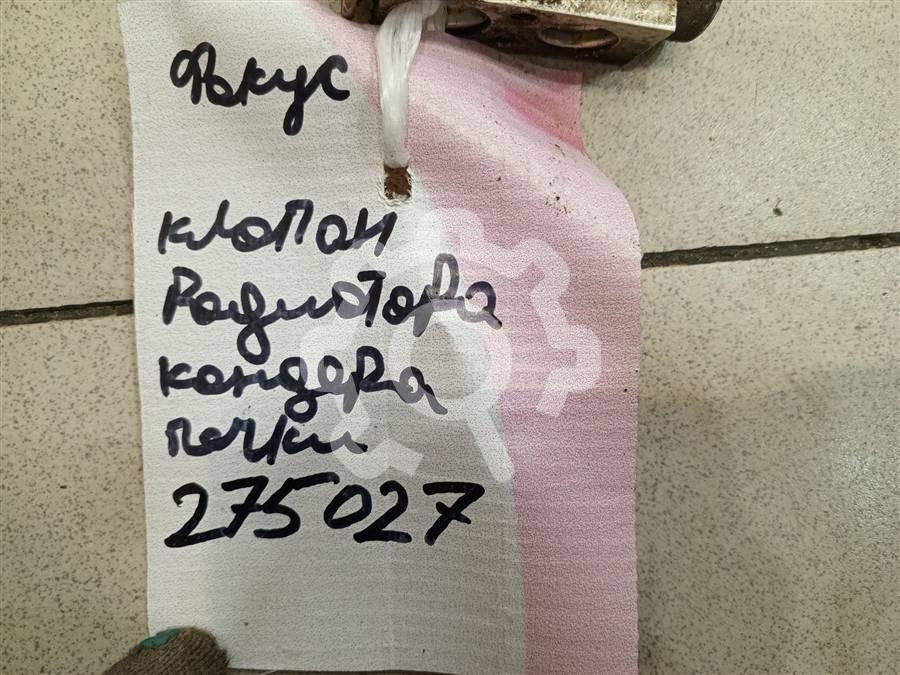 Фокус
клапан
Радиатора
кондера
печки
275027